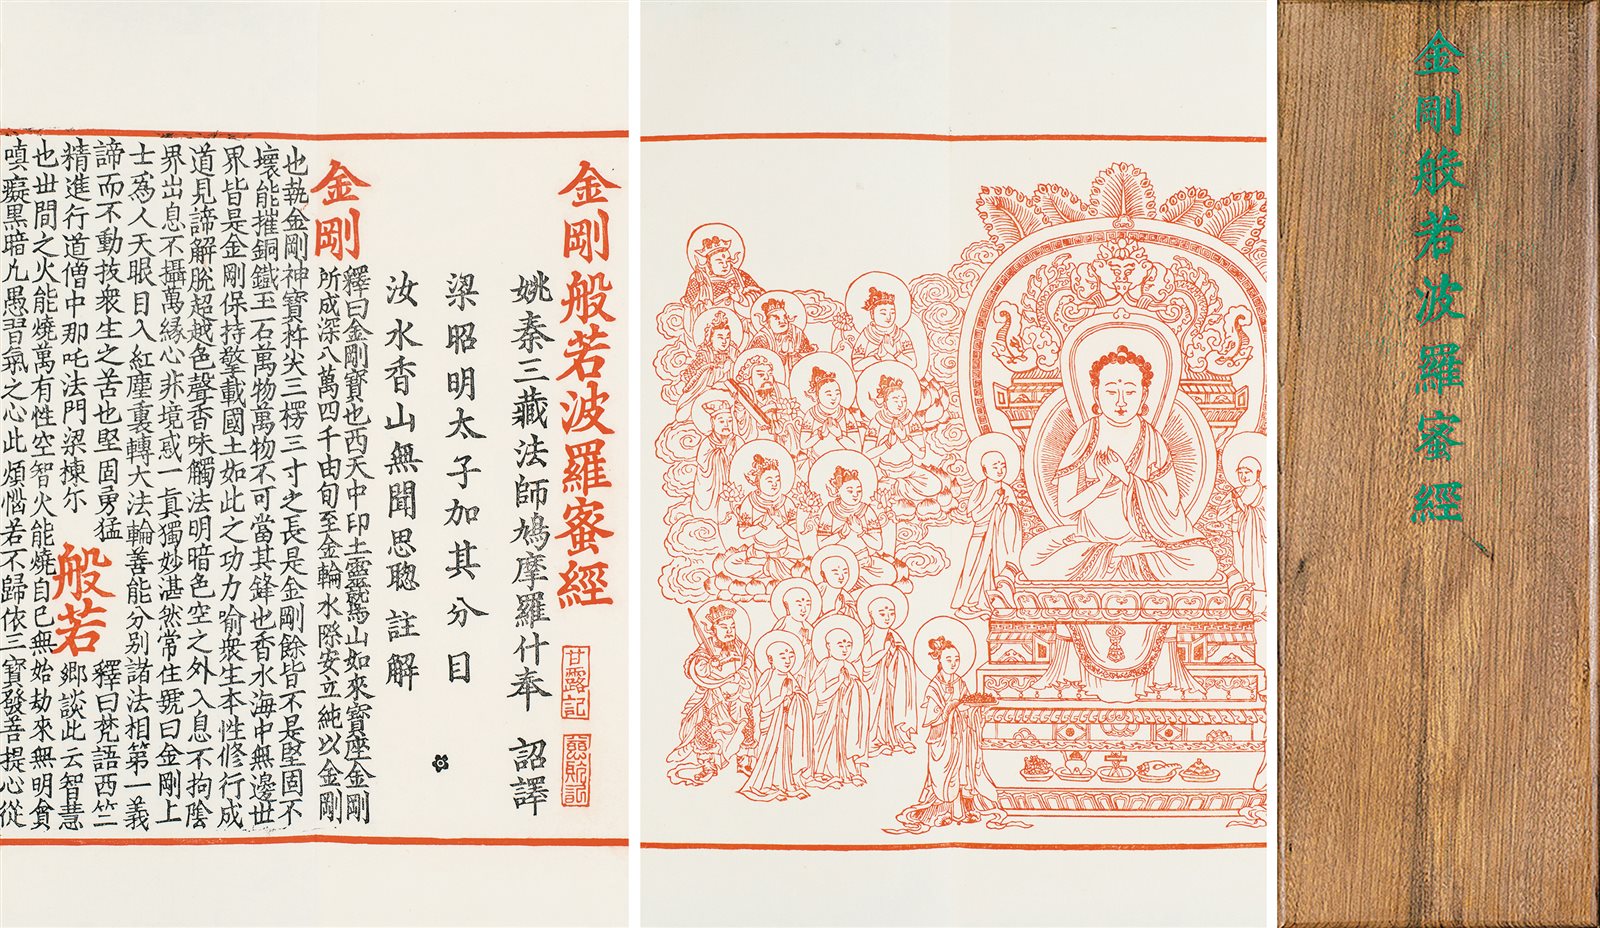 金剛般若波羅蜜經
金剛般若波羅蜜經
甘露記
姚秦三藏法師鳩摩羅什奉 詔譯
梁昭明太子加其分目
汝水香山無聞思聰 註解
金剛
釋曰金剛寶也西天中印土靈鷲山如來寶座金剛
所成深八萬四千由旬至金輪水際安立純以金剛
也執金剛神寶杵尖三楞三寸之長是金剛餘皆不是堅固不
壞能摧銅鐵玉石萬物萬物不可當其鋒也香水海中無邊世
界皆是金剛保持擎載國土如此之功力喻衆生本性修行成
道見諦解脫超越色聲香味觸法明暗色空之外入息不拘陰
界出息不攝萬緣心非境惑一眞獨妙湛然常住號曰金剛上
士爲人天眼目入紅塵裏轉大法輪善能分別諸法相第一義
諦而不動技衆生之苦也堅固勇猛
精進行道僧中那吒法門梁棟尓
般若
釋曰梵語西竺
鄉談此云智慧
也世間之火能燒萬有性空智火能燒自己無始劫來無明貪
嗔癡黑暗凢愚習氣之心此煩惱若不歸依三寶發菩提心從